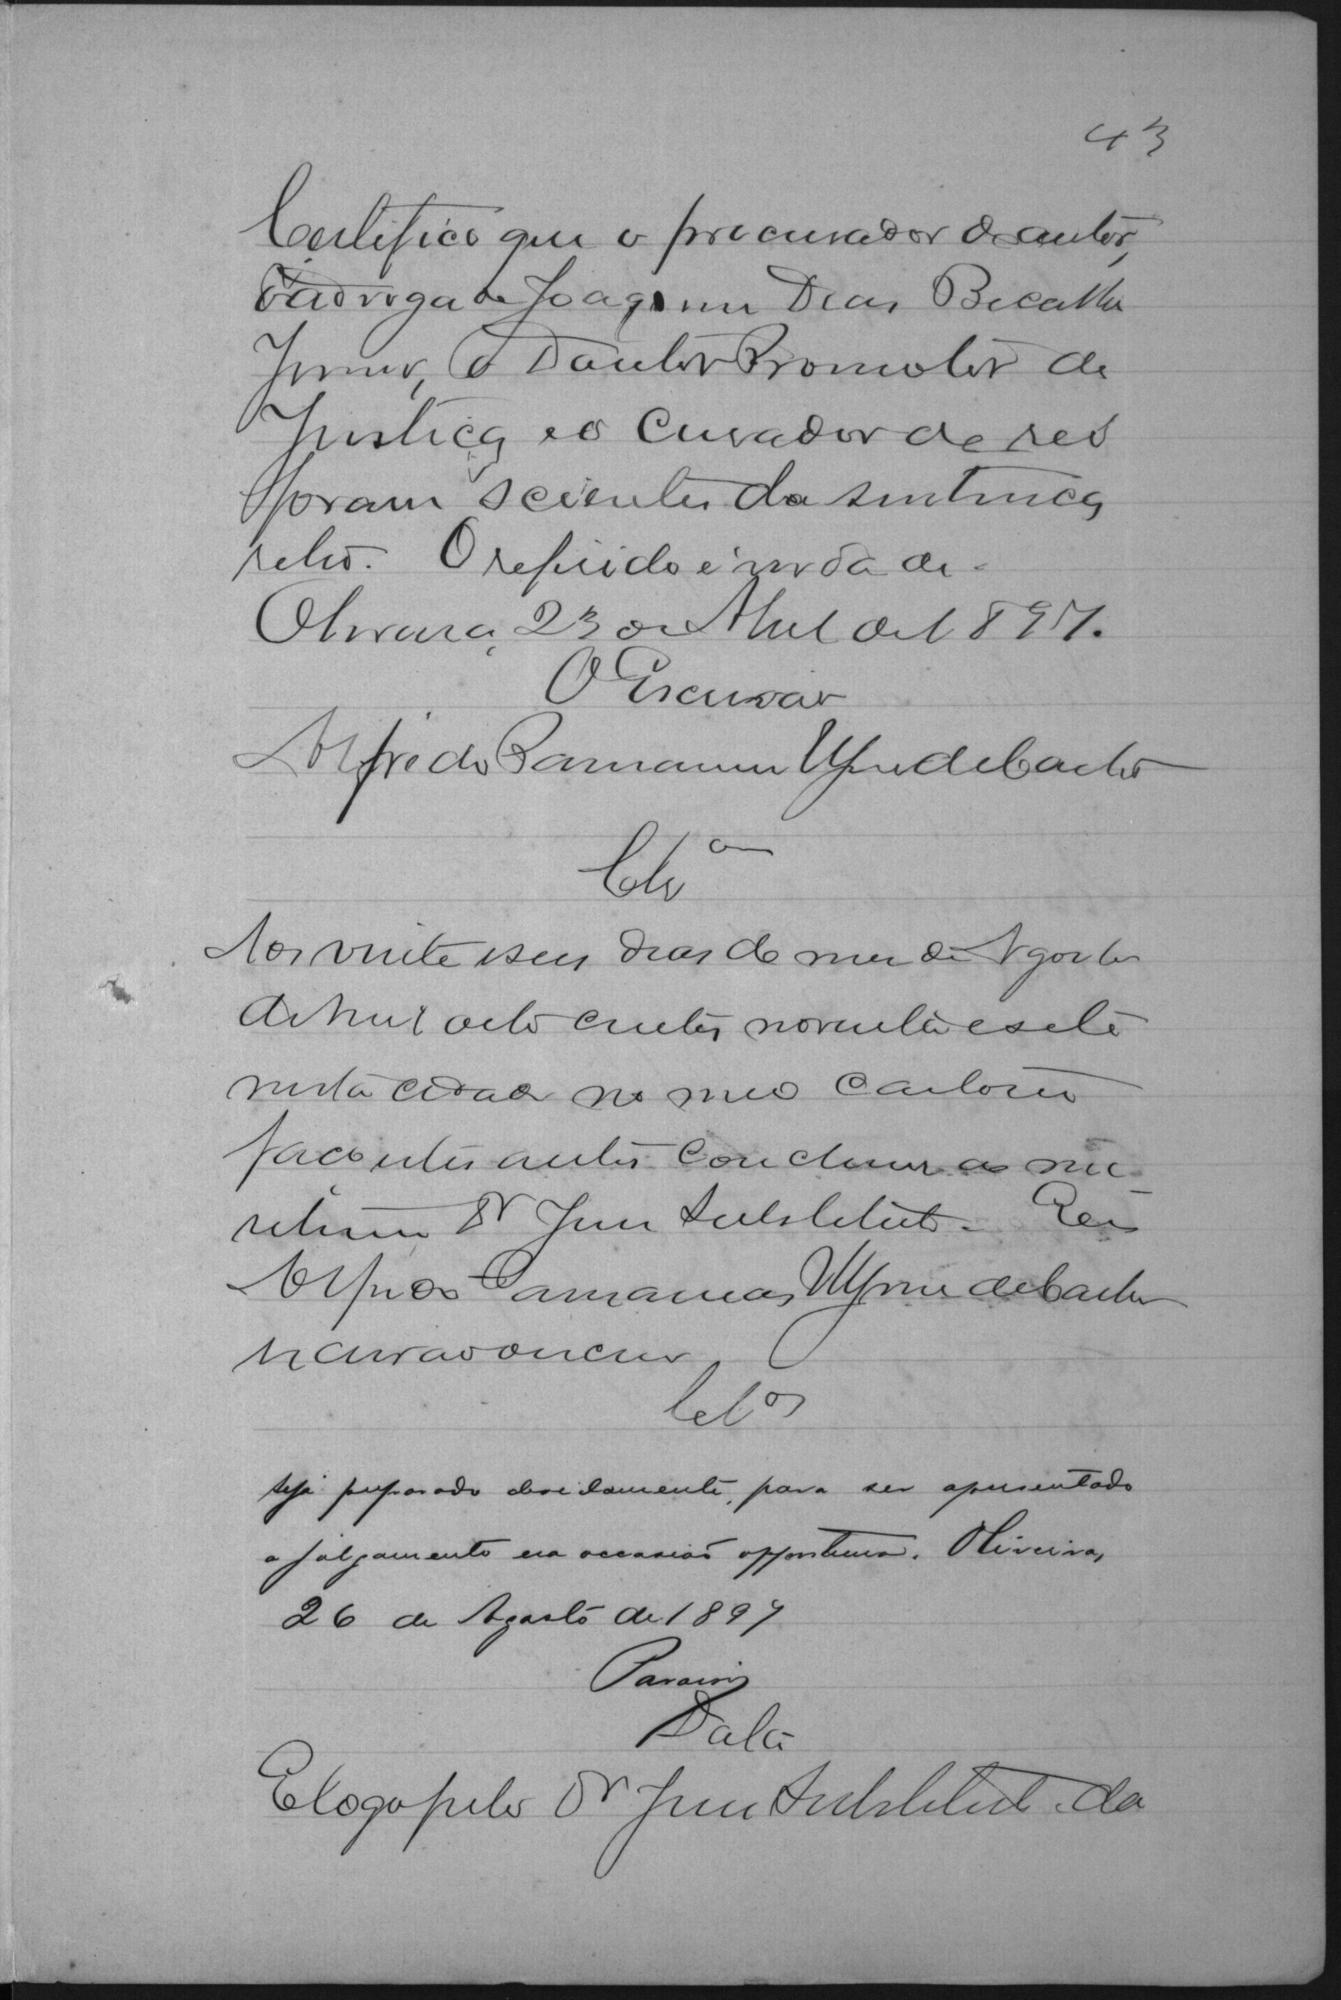 43
Certifico que o procurador do autor,
o advogado Joaquim Dias Bicalho
Junior, o Doutor Promotor de
Justiça e o Curador do reo
foram scientes da sentença
retro. O referido é verdade.
Oliveira, 23 de Abril de 1897.
O Escrivão
Alfredo
Clsão
Aos vinte e seis dias do mez de Agosto
de mil oito centos noventa e sete
nesta cidade no meo cartorio
faço estes autos conclusos ao me-
retissimo Dr Juiz Substituto. Eu
Alfredo
escrivão o escrevi
Clsos
Seja preparado devidamente, para ser apresentado
a julgamento na occasião opportuna. Oliveira,
26 de Agosto de 1897
Data
E logo pelo Dr Juiz Substituto da